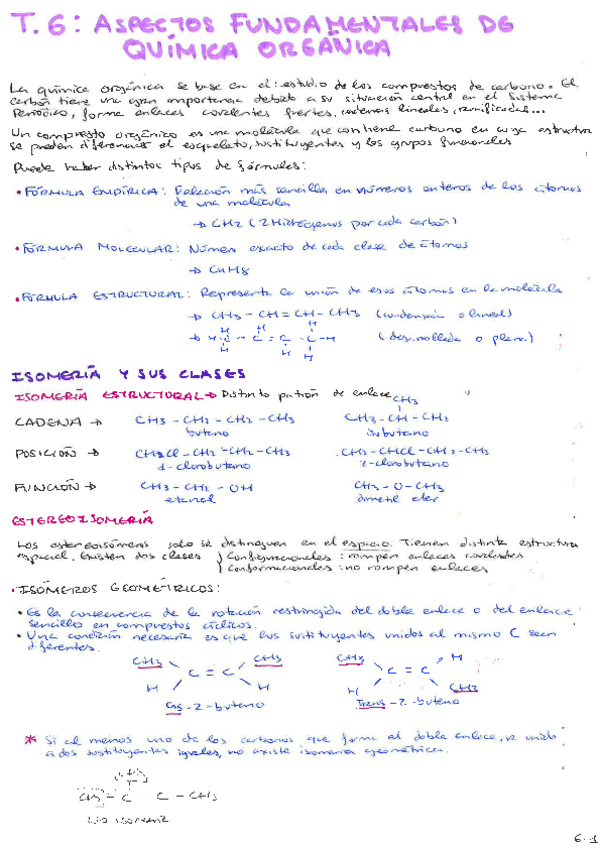 T.6: ASPECTOS FUNDAMENTALES DE
QUÍMICA ORGÁNICA
La química orgánica se base en el: estudio de los compuestos de carbono. El
carbón tiene una gran importancia debido a su situación central en el Sistema
Periódico, forma enlaces covalentes fuertes, cadenas lineales, ramificadas...
Un compuesto orgánico es una molécula que contiene carbono en cuya estructura
se pueden diferenciar el esqueleto, sustituyentes y los grupos funcionales
Puede haber distintos tipos de fórmulas:
• FÓRMULA EMPÍRICA: Relación más sencilla en números enteros de los átomos
de una molécula
→ CH2 (2 Hidrógenos por cada carbón)
• FÓRMULA MOLECULAR: Número exacto de cada clase de átomos
→ C4H8
• FÓRMULA ESTRUCTURAL: Representa la unión de esos átomos en la molécula
→ CH3 - CH = CH - CH3 (condensada o lineal)
→ H - C - C = C - C - H (desarrollada o plana)
ISOMERÍA Y SUS CLASES
ISOMERÍA ESTRUCTURAL → Distinto patrón de enlace
CH3
CADENA → CH3 - CH2 - CH2 - CH3 CH3 - CH - CH3
butano isobutano
POSICIÓN → CH2Cl - CH2 - CH2 - CH3 CH3 - CHCl - CH2 - CH3
1-clorobutano 2-clorobutano
FUNCIÓN → CH3 - CH2 - OH CH3 - O - CH3
etanol dimetil eter
ESTEREOISOMERÍA
Los estereoisómeros solo se distinguen en el espacio. Tienen distinta estructura
espacial. Existen dos clases { Configuracionales: rompen enlaces covalentes
{ Conformacionales: no rompen enlaces
• ISÓMEROS GEOMÉTRICOS:
• Es la consecuencia de la rotación restringida del doble enlace o del enlace
sencillo en compuestos cíclicos.
• Una condición necesaria es que los sustituyentes unidos al mismo C sean
diferentes.
CH3 CH3 CH3 H
C = C C = C
H H H CH3
Cis-2-buteno Trans-2-buteno
* Si al menos uno de los carbonos que forma el doble enlace, va unido
a dos sustituyentes iguales, no existe isomería geométrica.
CH3 - C C - CH3
6.1